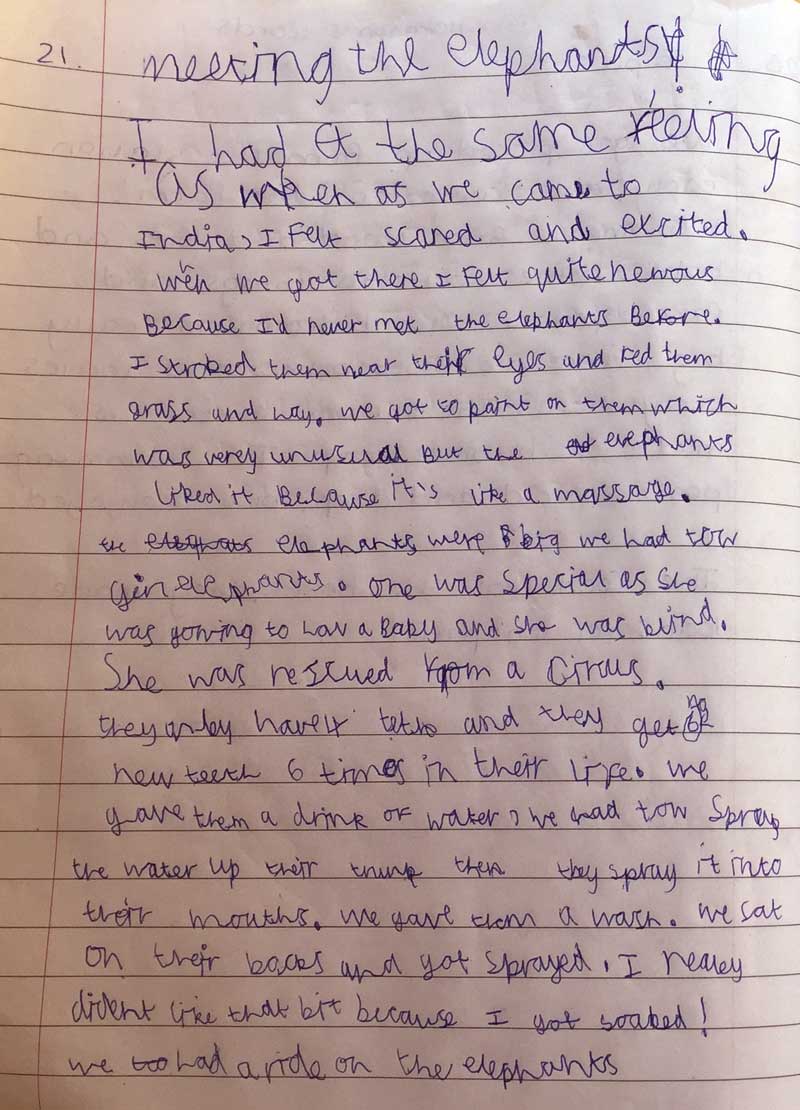 21. meeting the elephants
I had the same feeling
as when as we came to
India, I felt scared and excited.
when we got there I felt quite nervous
Because I'd never met the elephants Before.
I stroked them near their eyes and fed them
grass and hay. we got to paint on them which
was verey unusual But the elephants
liked it Because it's like a massage.
the elephants were big we had tow
girl elephants. one was special as she
was gowing to hav a Baby and she was blind.
She was rescued from a Circus.
they only have 4 teths and they get
new teeth 6 times in their life. we
gave them a drink of water, we had tow spray
the water up their trunk then they spray it into
their mouths. we gave them a wash. we sat
on their backs and got sprayed. I
dident like that bit because I got soaked!
we had a ride on the elephants